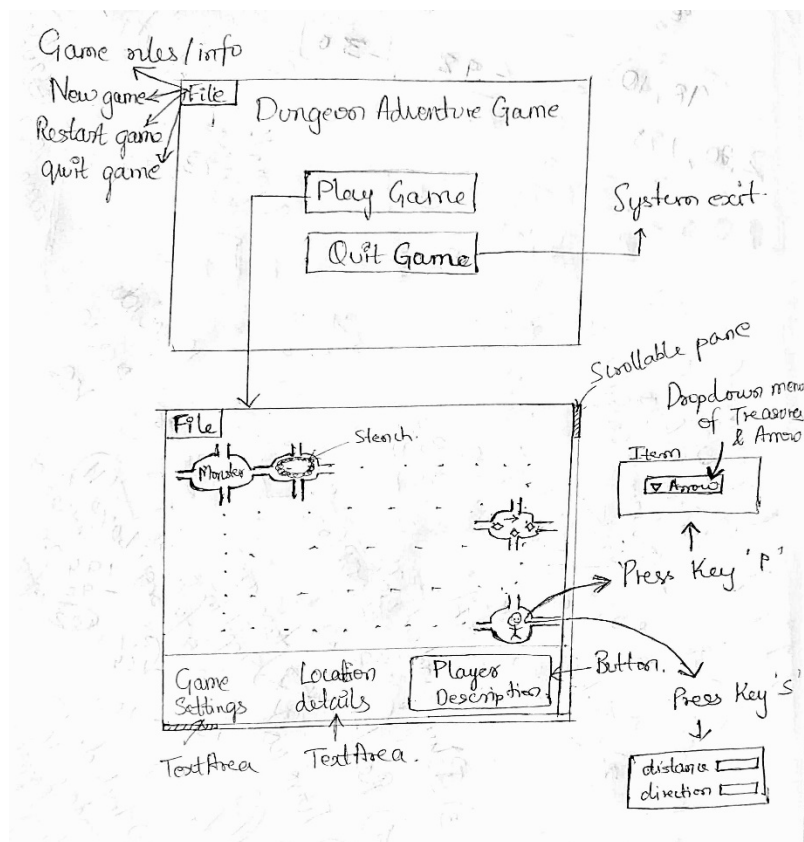 Game rules/info
New game
Restart game
quit game
File
Dungeon Adventure Game
Play Game
Quit Game
System exit.
Scrollable pane
Dropdown menu
of Treasure
& Arrow
File
Stench.
Monster
Item
Arrow
Press Key 'P'
Game
Settings
Location
details
Player
Description.
Button.
Press Key 'S'
TextArea
TextArea.
distance
direction